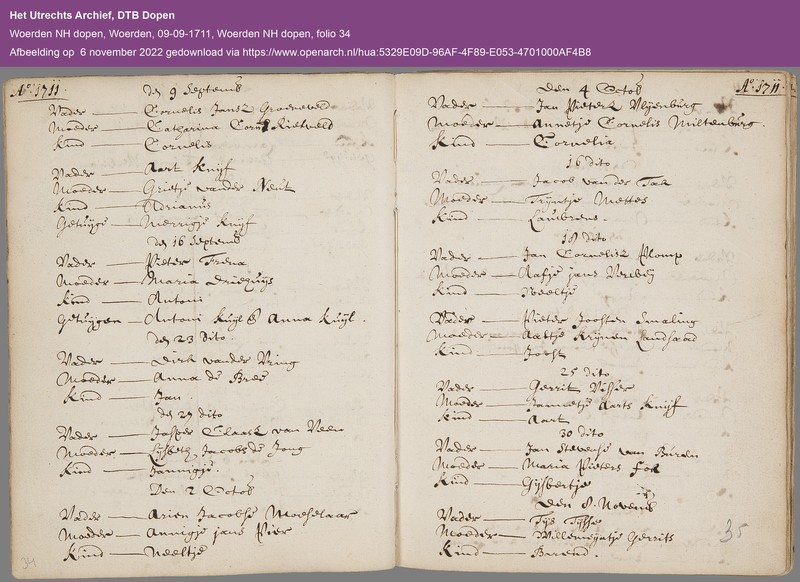 Het Utrechts Archief, DTB Dopen
Woerden NH dopen, Woerden, 09-09-1711, Woerden NH dopen, folio 34
Afbeelding op 6 november 2022 gedownload via https://www.openarch.nl/hua:5329E09D-96AF-4F89-E053-4701000AF4B8
Ao. 1711.
den 9 Septemb
Vader — Cornelis Jansz Groenevelt
Moeder — Catharina Corn Rietveld
Kind — Cornelis
Vader — Aart Knijf
Moeder — Grietje vander Neut
Kind — Adrianus
Getuyge — Merrigje Knijf
den 16 Septemb
Vader — Pieter Frena
Moeder — Maria Driequijs
Kind — Antoni
Getuijgen — Antoni Kuyl & Anna Kuijl.
den 23 Dito.
Vader — Dirk vander Vring
Moeder — Anna de Bree
Kind — Jan.
den 27 dito
Vader — Jasper Claasz van Veen
Moeder — Lijsbeth Jacobs de Jong
Kind — Jannigje.
Den 2 Octob
Vader — Arien Jacobse Moeselaar
Moeder — Annigje Jans Pier
Kind — Neeltje
34
Ao. 1711.
Den 4 Octob
Vader — Jan Pieterz Vlijenburg
Moeder — Annetje Cornelis Miltenburg.
Kind — Cornelia
16 dito
Vader — Jacob vander Tak
Moeder — Trijntje Mettes
Kind — Laubrens.
18 Dito
Vader — Jan Cornelisz Plomp
Moeder — Aafje Jans Verweij
Kind — Neeltje
Vader — Pieter Joosten Smaling
Moeder — Aaltje Krijnen Landsaad
Kind — Joost
25 dito
Vader — Gerrit Visser
Moeder — Jannetje Aarts Knijf
Kind — Aart
30 dito
Vader — Jan Stevense van Buren
Moeder — Maria Pieters Fok
Kind — Gijsbertje
Den 8. Novemb
Vader — Tijs Tijsse
Moeder — Willemijntje Gerrits
Kind — Barend.
35